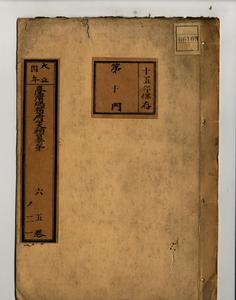 十五年保存
第十門
大正四年
臺灣總督府公文類纂
六五卷
ノ二一